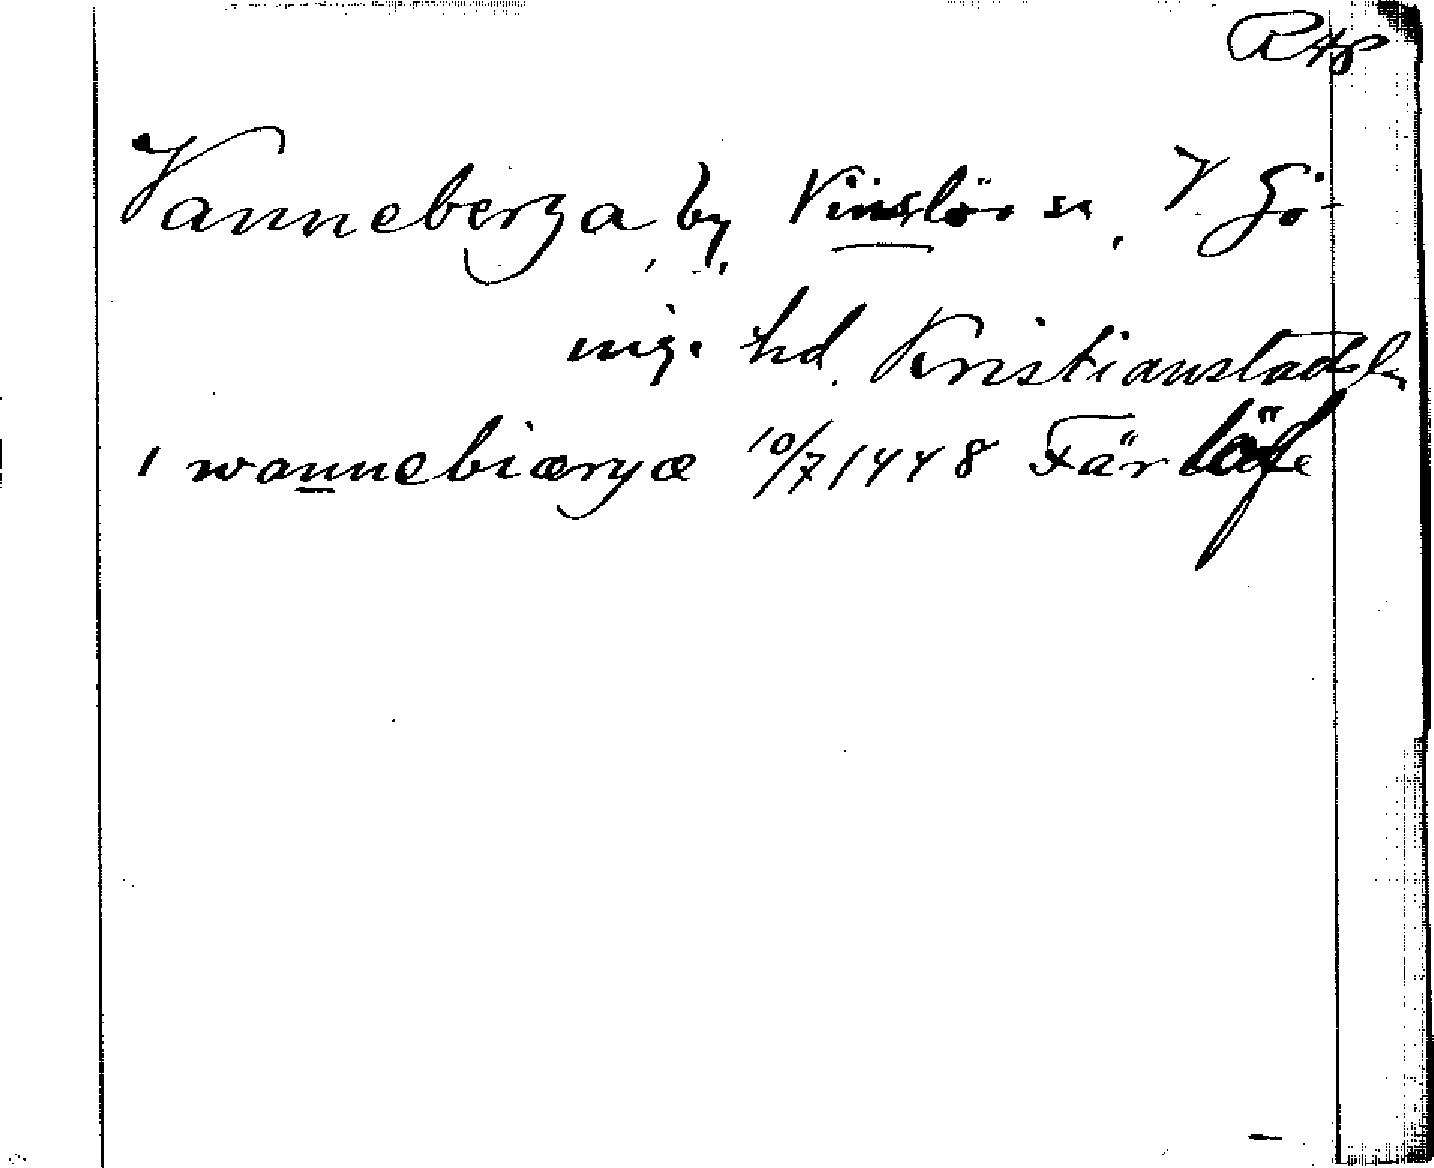 Rtp
Vanneberga, by, Vinslövs sn, V Gö-
inge hd. Kristianstads l.
I wannebiærgæ 10/7 1448 Färlöfe